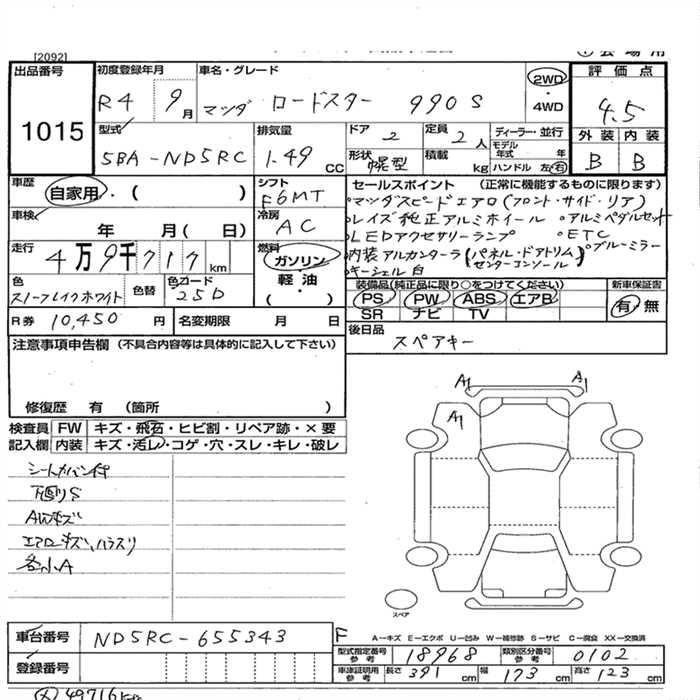 [2092]
出品番号
1015
初度登録年月
R4 9月
車名・グレード
マツダ ロードスター 990S
2WD
・
4WD
評価点
4.5
外装 内装
B B
型式
5BA-ND5RC
排気量
1.49 CC
ドア
2
定員
2人
ディーラー・並行
モデル年式 年
形状
幌型
積載 kg
ハンドル 左・右
車歴
自家用・( )
シフト
F6MT
車検
年 月( 日)
冷房
AC
走行
4万9千717km
燃料
ガソリン
軽油
・
( )
色
スノーフレイクホワイト
色替
色コード
25D
R券 10,450円
名変期限 月 日
セールスポイント (正常に機能するものに限ります)
・マツダスピードエアロ(フロント・サイド・リア)
・レイズ純正アルミホイール ・アルミペダルセット
・LEDアクセサリーランプ ・ETC
・内装アルカンターラ(パネル・ドアトリム センターコンソール) ・ブルーミラー
・キーシェル白
装備品(純正品に限り○をつけてください)
PS PW ABS エアB
SR ナビ TV
新車保証書
有・無
後日品
スペアキー
注意事項申告欄 (不具合内容等は具体的に記入して下さい)
修復歴 有 (箇所 )
検査員記入欄
FW キズ・飛石・ヒビ割・リペア跡・×要
内装 キズ・汚レ・コゲ・穴・スレ・キレ・破レ
下廻りS
AWキズ
各小A
A1 A1
A1
スペア
車台番号 ND5RC-655343
登録番号
F
A-キズ E-エクボ U-凹み W-補修跡 S-サビ C-腐食 XX-交換済
型式指定番号 参考 18968
類別区分番号 参考 0102
車庫証明用 参考 長さ 391cm 幅 173cm 高さ 123cm